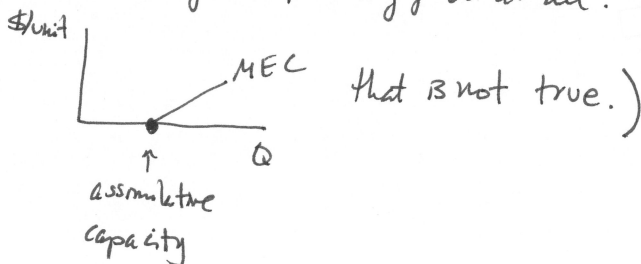 $/unit
MEC
that is not true.)
Q
↑
assimilative
capacity